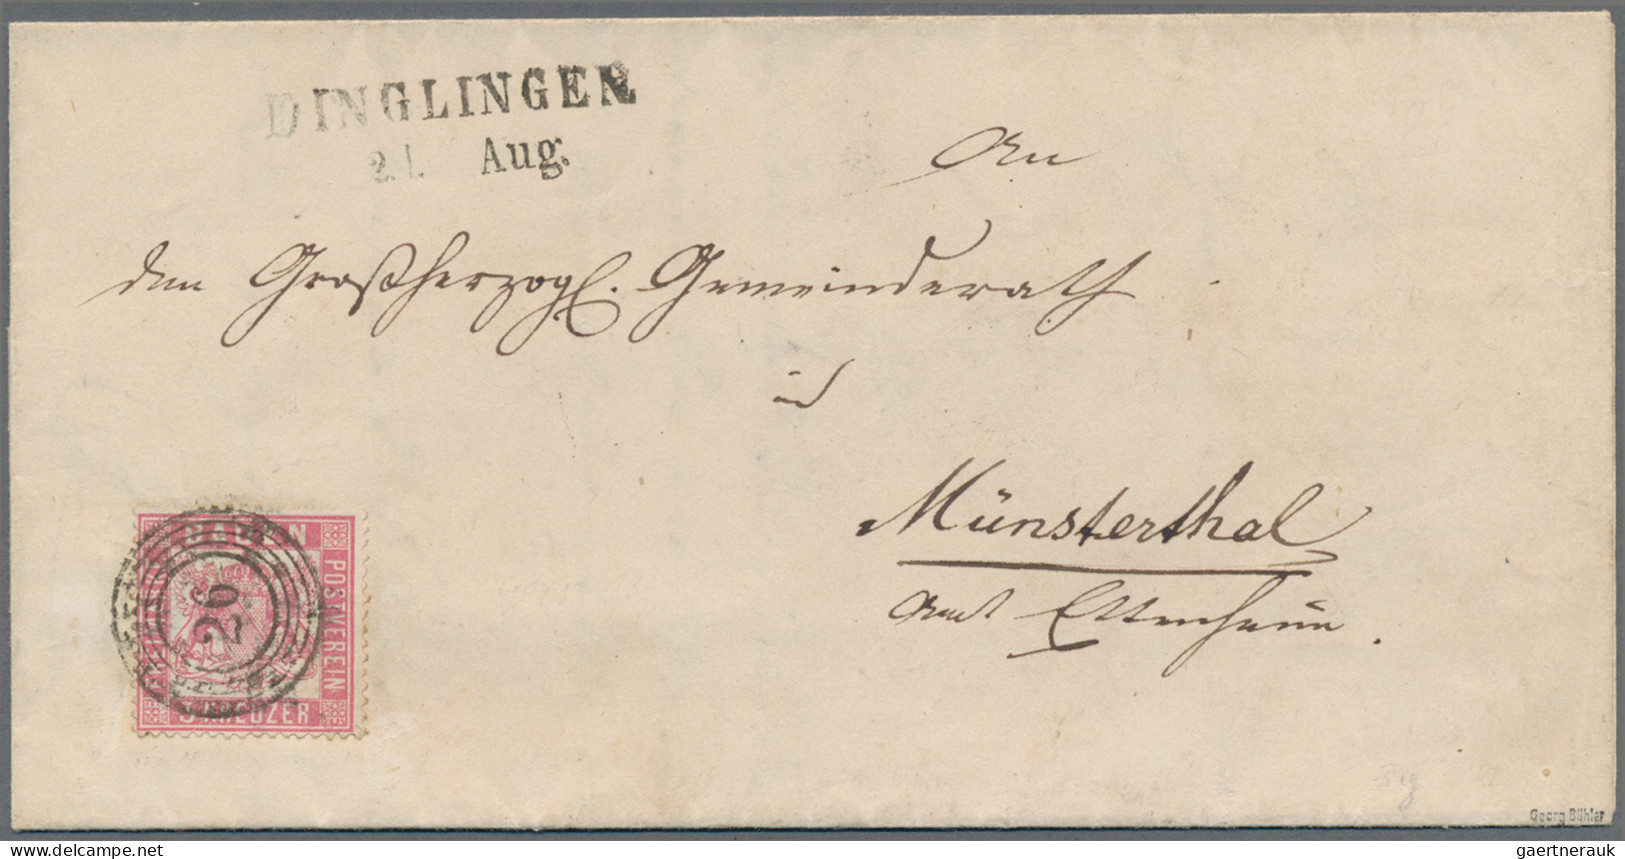 DINGLINGEN
21. Aug.
An
den Großherzogl. Gemeinderath
in
Münsterthal
Amt Ettenheim.
BADEN
POSTVEREIN
3 KREUZER
26
Georg Bühler
delcampe.net
gaertnerauk